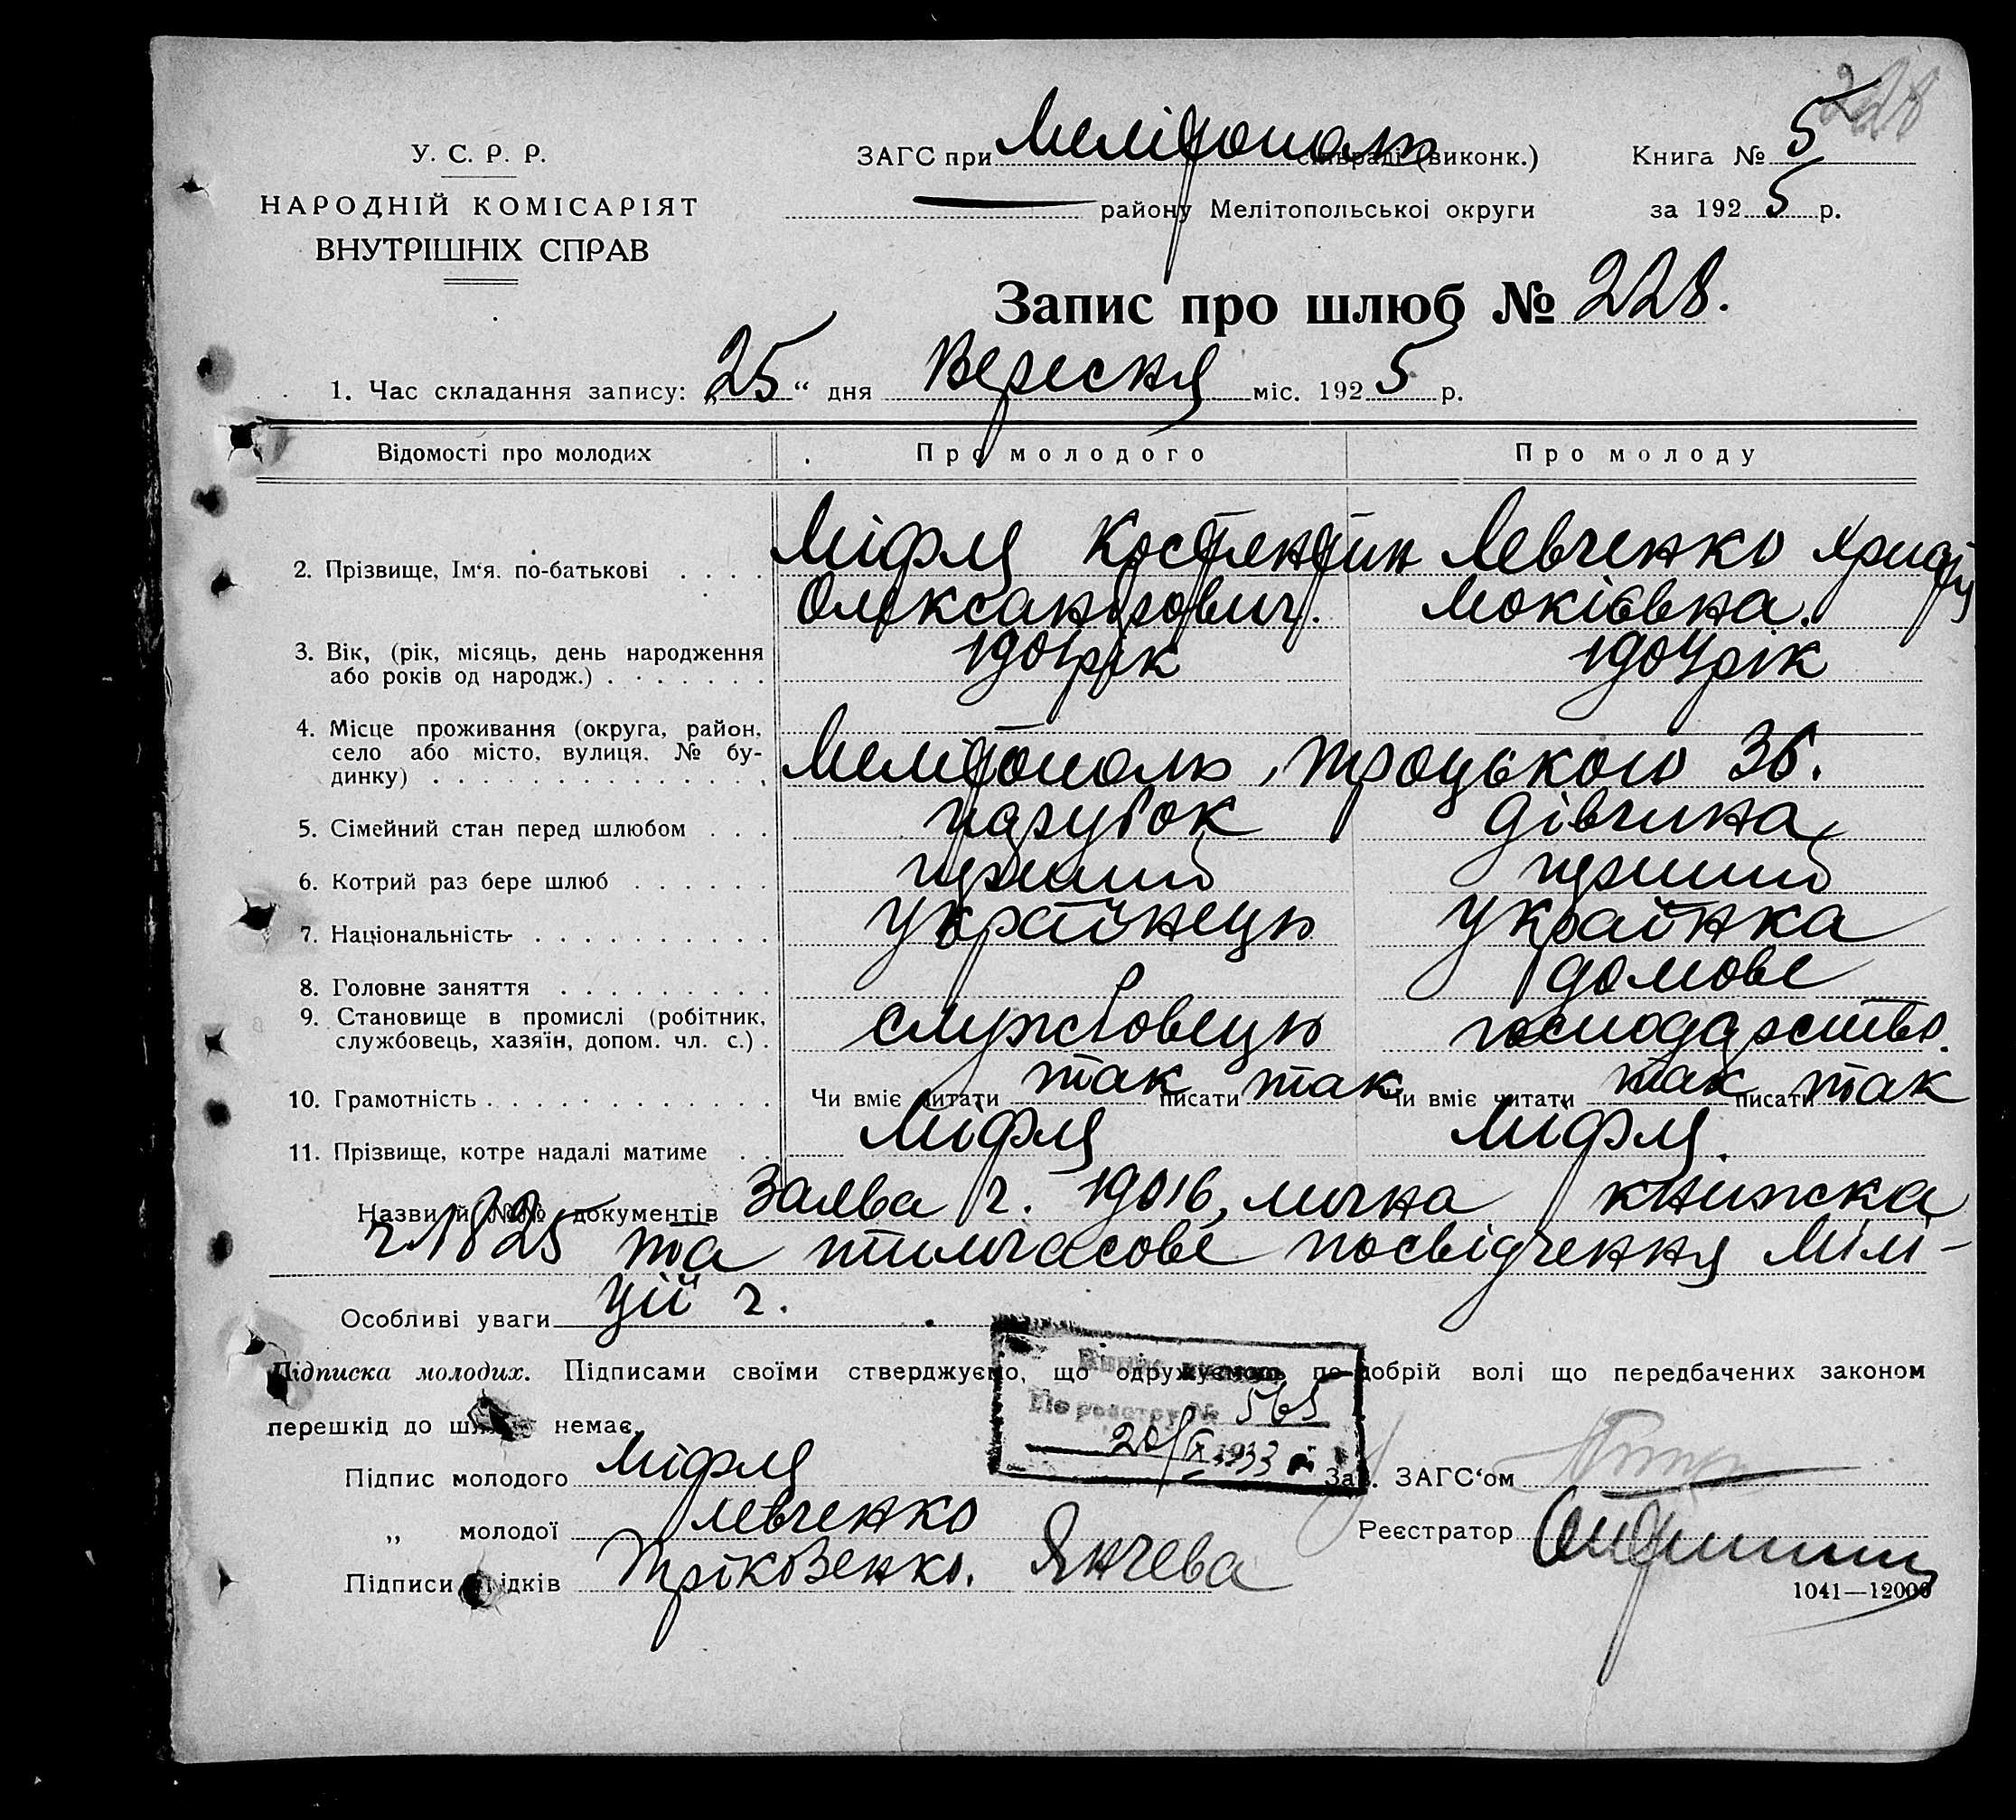 228
У. С. Р. Р.
НАРОДНІЙ КОМІСАРІЯТ
ВНУТРІШНІХ СПРАВ
ЗАГС при Мелітополь сільраді (виконк.)
Книга № 5
району Мелітопольської округи
за 1925 р.
Запис про шлюб № 228.
1. Час складання запису: „25“ дня Вересня міс. 1925 р.
Відомості про молодих Про молодого Про молоду
2. Прізвище, Ім‘я. по-батькові . . . . Міфля Костянтин Левченко
Олександрович. Мокіївна.
3. Вік, (рік, місяць, день народження 1901 рік 1904 рік
або років од народж.) . . . . . . .
4. Місце проживання (округа, район,
село або місто, вулиця, № бу-
динку) . . . . . . . . . . . . . . Мелітополь, Троцького 36.
5. Сімейний стан перед шлюбом . . . парубок дівчина
6. Котрий раз бере шлюб . . . . . . перший перший
7. Національність . . . . . . . . . . українець українка
8. Головне заняття . . . . . . . . . домове
9. Становище в промислі (робітник, службовець господарство.
службовець, хазяїн, допом. чл. с.) .
10. Грамотність . . . . . . . . . . . . Чи вміє читати так писати так Чи вміє читати так писати так
11. Прізвище, котре надалі матиме . . Міфля Міфля.
Назви й №№ документів Заява ч. 19016, лична книжка
ч. 1825 та тимчасове посвідчення Мілі-
Особливі уваги ції ч.
Підписка молодих. Підписами своїми стверджуємо, що одружуємось по добрій волі що передбачених законом
перешкід до шлюбу немає.
По реестру № 565
20/IX 1933
Підпис молодого Міфля
Зав. ЗАГС‘ом
„ молодої Левченко
Реєстратор
Підписи свідків Тріковенко. Янчева
1041—12000